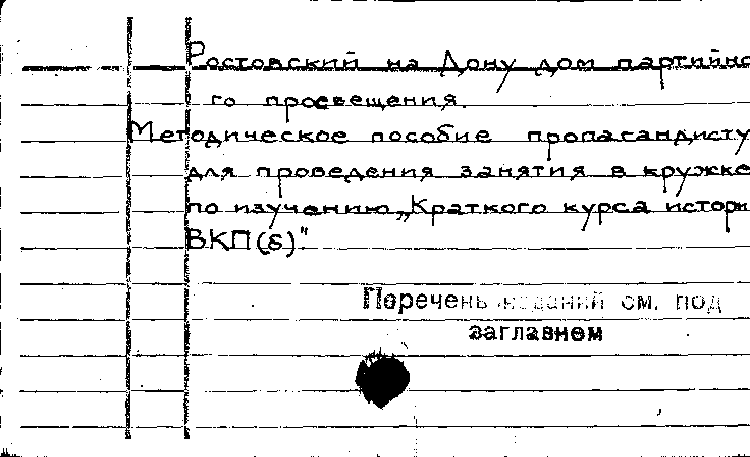 Ростовский на Дону дом партийно
го просвещения.
Методическое пособие пропагандисту
для проведения занятия в кружке
по изучению „Краткого курса истори
ВКП(б)."
Перечень изданий см. под
заглавием